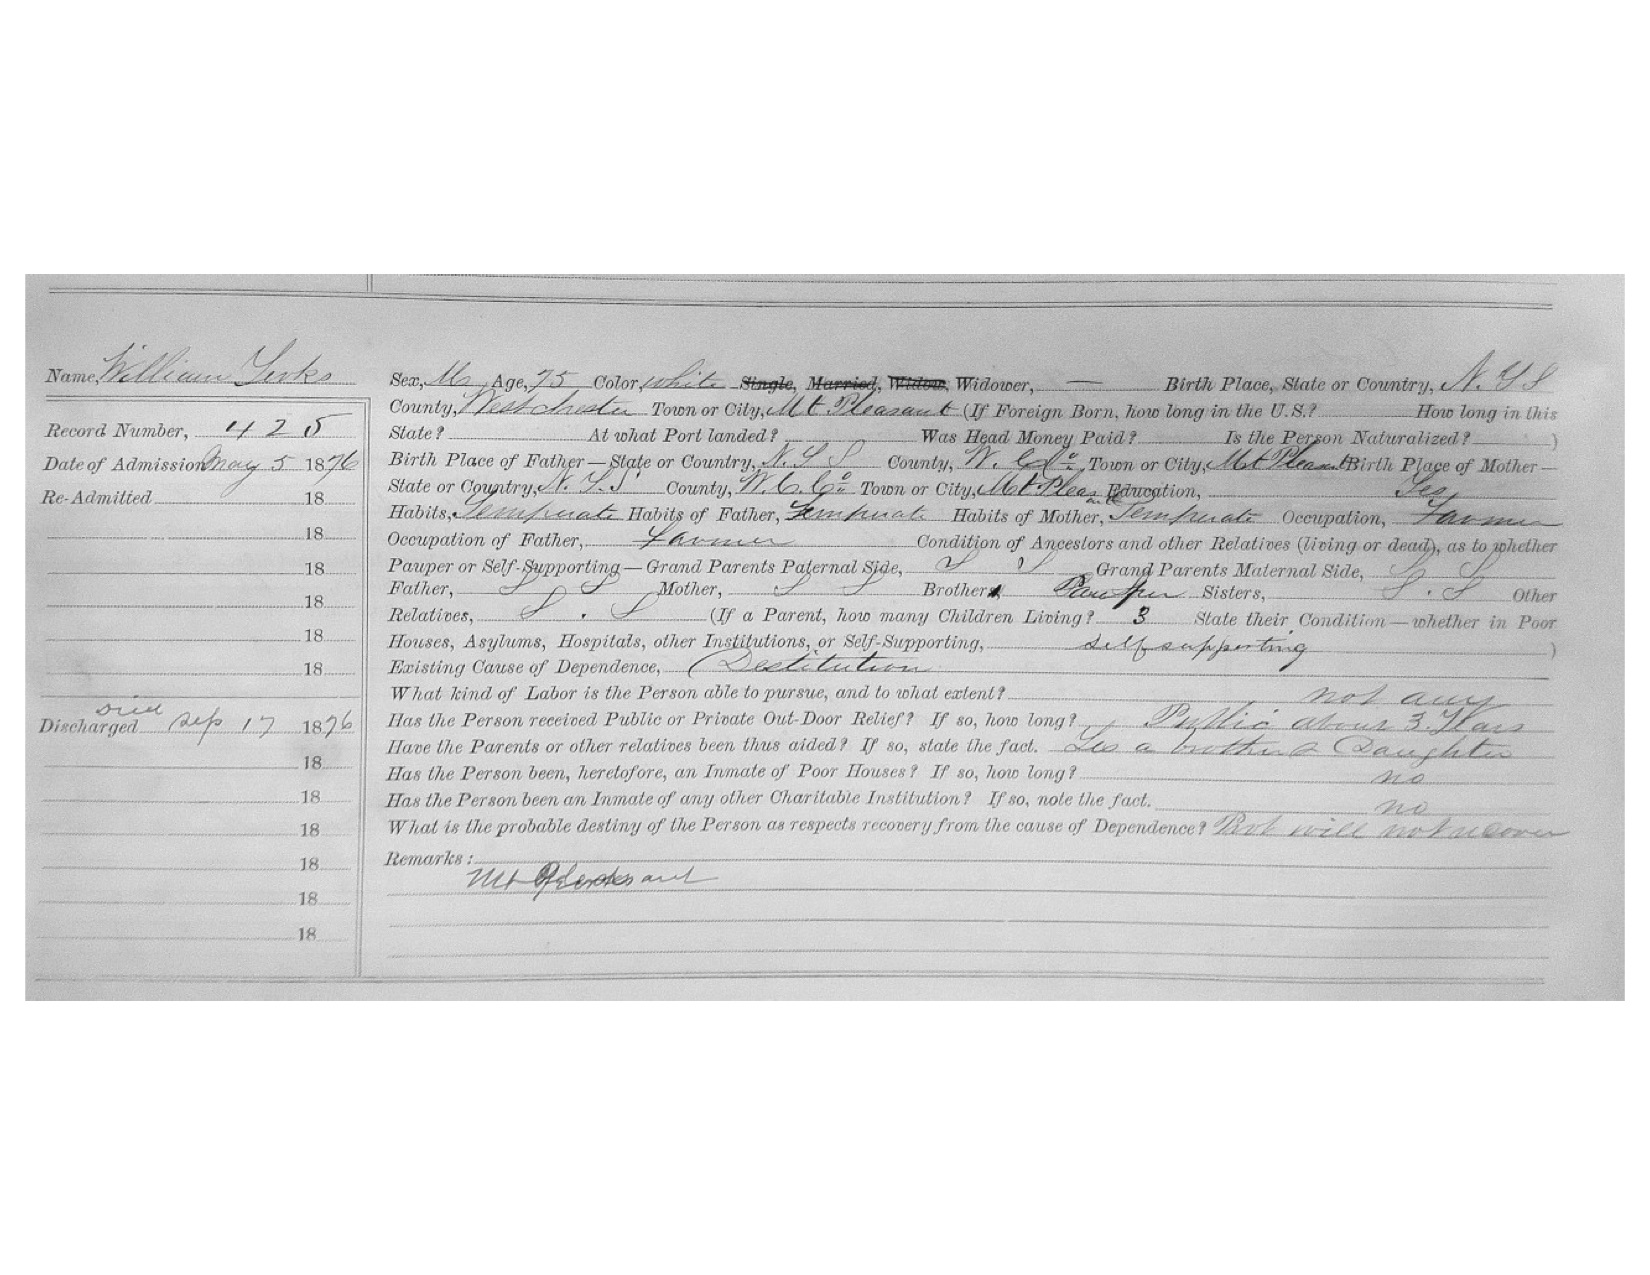 Name, William Yerks
Record Number, 425
Date of Admission May 5 1876
Re-Admitted 18
18
18
18
18
18
died
Discharged Sep 17 1876
18
18
18
18
18
18
Sex, M Age, 75 Color, white Single, Married, Widow, Widower, — Birth Place, State or Country, N. Y S
County, Westchester Town or City, Mt Pleasant (If Foreign Born, how long in the U.S.? How long in this
State? At what Port landed? Was Head Money Paid? Is the Person Naturalized? )
Birth Place of Father—State or Country, N. Y S County, W. C. Co. Town or City, Mt Pleasant Birth Place of Mother—
State or Country, N. Y. S County, W. C. Co. Town or City, Mt Pleasant Education, Yes
Habits, Temperate Habits of Father, Temperate Habits of Mother, Temperate Occupation, Farmer
Occupation of Father, Farmer Condition of Ancestors and other Relatives (living or dead), as to whether
Pauper or Self-Supporting—Grand Parents Paternal Side, S S Grand Parents Maternal Side, S. S
Father, S S Mother, S S Brother, Pauper Sisters, S. S Other
Relatives, S. S (If a Parent, how many Children Living? 3 State their Condition—whether in Poor
Houses, Asylums, Hospitals, other Institutions, or Self-Supporting, self supporting )
Existing Cause of Dependence, Destitution
What kind of Labor is the Person able to pursue, and to what extent? not any
Has the Person received Public or Private Out-Door Relief? If so, how long? Public about 3 Years
Have the Parents or other relatives been thus aided? If so, state the fact. Yes a brother & Daughter
Has the Person been, heretofore, an Inmate of Poor Houses? If so, how long? no
Has the Person been an Inmate of any other Charitable Institution? If so, note the fact. no
What is the probable destiny of the Person as respects recovery from the cause of Dependence? Prob will not recover
Remarks:
Mt Pleasant